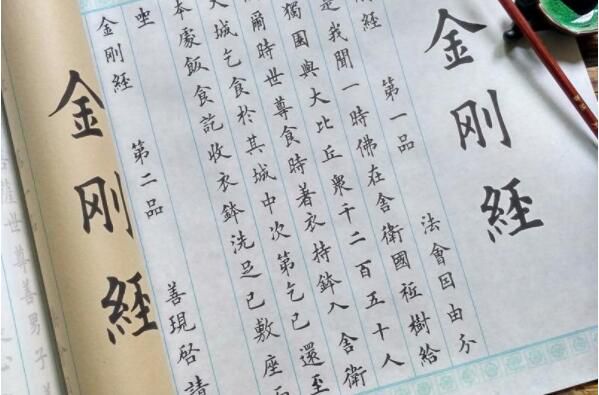 金刚經
刚經 第一品 法會因由分
是我聞一時佛在舍衛國祇樹給
獨園與大比丘衆千二百五十人
爾時世尊食時著衣持鉢入舍衛
大城乞食於其城中次第乞已還至
本處飯食訖收衣鉢洗足已敷座而
坐
金刚經 第二品 善現啓請
金刚經
世尊善男子